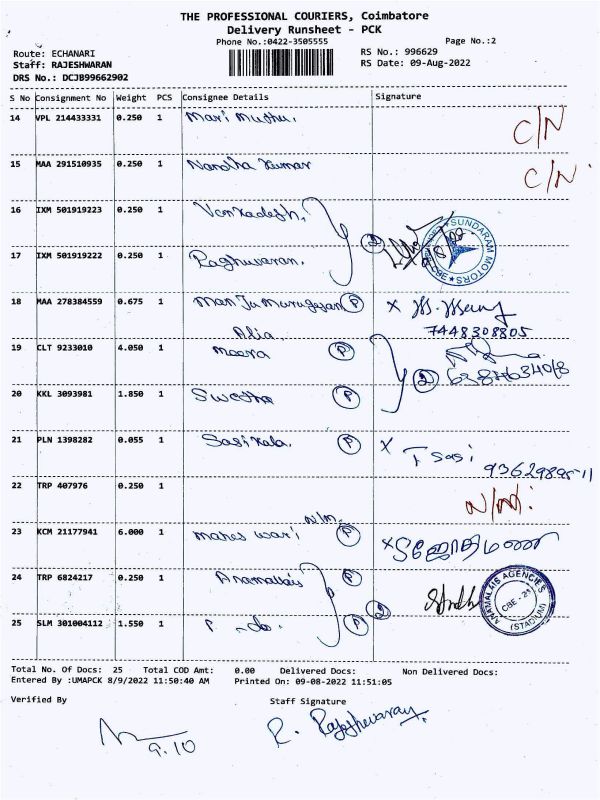 THE PROFESSIONAL COURIERS, Coimbatore
Delivery Runsheet - PCK
Phone No.:0422-3505555
Page No.:2
Route: ECHANARI
RS No.: 996629
Staff: RAJESHWARAN
RS Date: 09-Aug-2022
DRS No.: DCJB99662902
S No Consignment No Weight PCS Consignee Details Signature
14 VPL 214433331 0.250 1 Mari Muthu. C/N
15 MAA 291510935 0.250 1 Nandha Kumar C/N
16 IXM 501919223 0.250 1 Venkadesh,
SUNDARAM MOTORS
17 IXM 501919222 0.250 1 Raghuvaran. 2
18 MAA 278384559 0.675 1 Man Ju Murugesan P X
7448308805
19 CLT 9233010 4.050 1 Meera P
20 KKL 3093981 1.850 1 Swetha P 2
21 PLN 1398282 0.055 1 Sasikala. P X T Sasi
22 TRP 407976 0.250 1
N/M.
23 KCM 21177941 6.000 1 Maheswari P X Sஜோதிமணி
24 TRP 6824217 0.250 1 Anamallais P
ANAMALAIS AGENCIES
(STADIUM)
25 SLM 301004112 1.550 1 P - do. P 2
Total No. Of Docs: 25 Total COD Amt: 0.00 Delivered Docs: Non Delivered Docs:
Entered By :UMAPCK 8/9/2022 11:50:40 AM Printed On: 09-08-2022 11:51:05
Verified By Staff Signature
9.10
R. Rajeshwaran